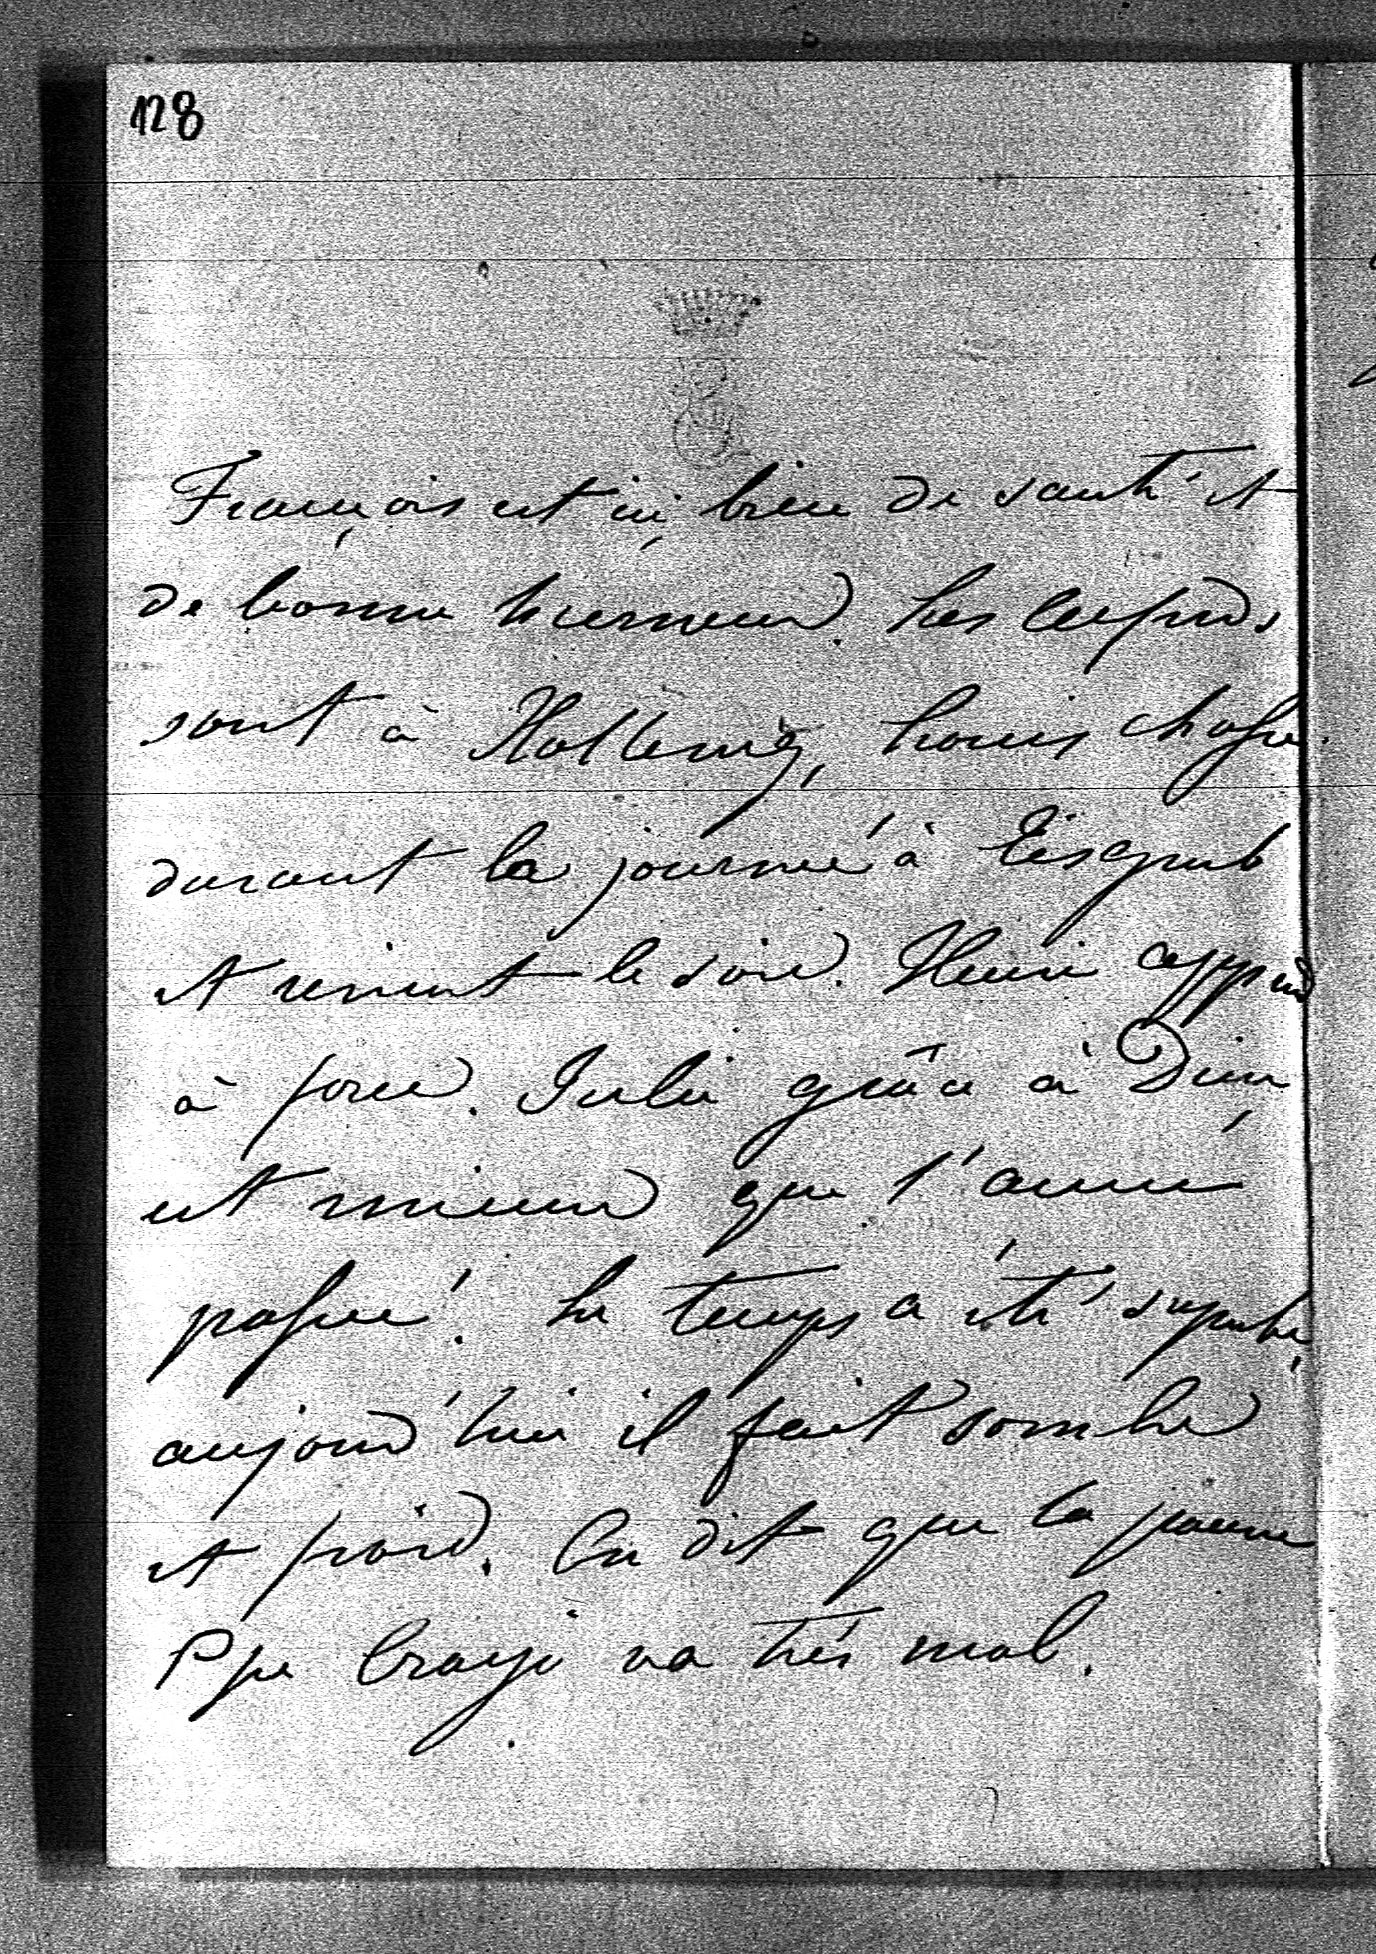 128
François est ici bien de santé et
de bonne humeur. Les Alfreds
sont à Hollenegg, Louis chasse
durant la journée à
et revient le soir. Henri apprend
à force. Julie grâce à Dieu
est mieux que l'année
passée. Le temps a été superbe,
aujourd'hui il fait sombre
et froid. On dit que la jeune
Psse va très mal.